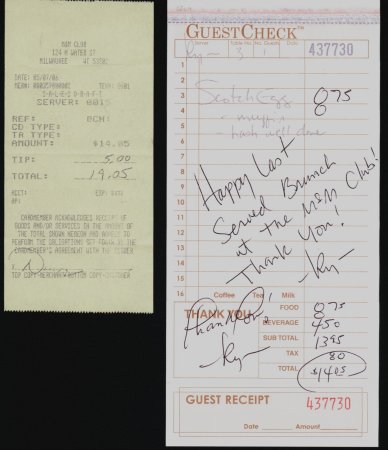 M&M CLUB
124 N WATER ST
MILWAUKEE WI 53202
DATE: 05/07/06
SALES DRAFT
SERVER: 0015
REF: BCH:
CD TYPE:
TR TYPE:
AMOUNT: $14.05
TIP: 5.00
TOTAL: 19.05
ACCT: EXP: ****
AP:
CARDMEMBER ACKNOWLEDGES RECEIPT OF
GOODS AND/OR SERVICES IN THE AMOUNT OF
THE TOTAL SHOWN HEREON AND AGREES TO
PERFORM THE OBLIGATIONS SET FORTH IN THE
CARDMEMBER'S AGREEMENT WITH THE ISSUER
TOP COPY-MERCHANT BOTTOM COPY-CUSTOMER
GUESTCHECK
Server Table No. Guests
Ry- 3 1 437730
1
2
3 Scotch Egg 875
4
5 hash well done
6
7
8 Happy Last
9 Served Brunch
10 at the M&M Club!
11 Thank You!
12 Ry-
13
14
15
16
Coffee Tea Milk
THANK YOU FOOD 875
BEVERAGE 450
SUB TOTAL 1325
TAX 80
$1405
Ry-
GUEST RECEIPT 437730
Date Amount